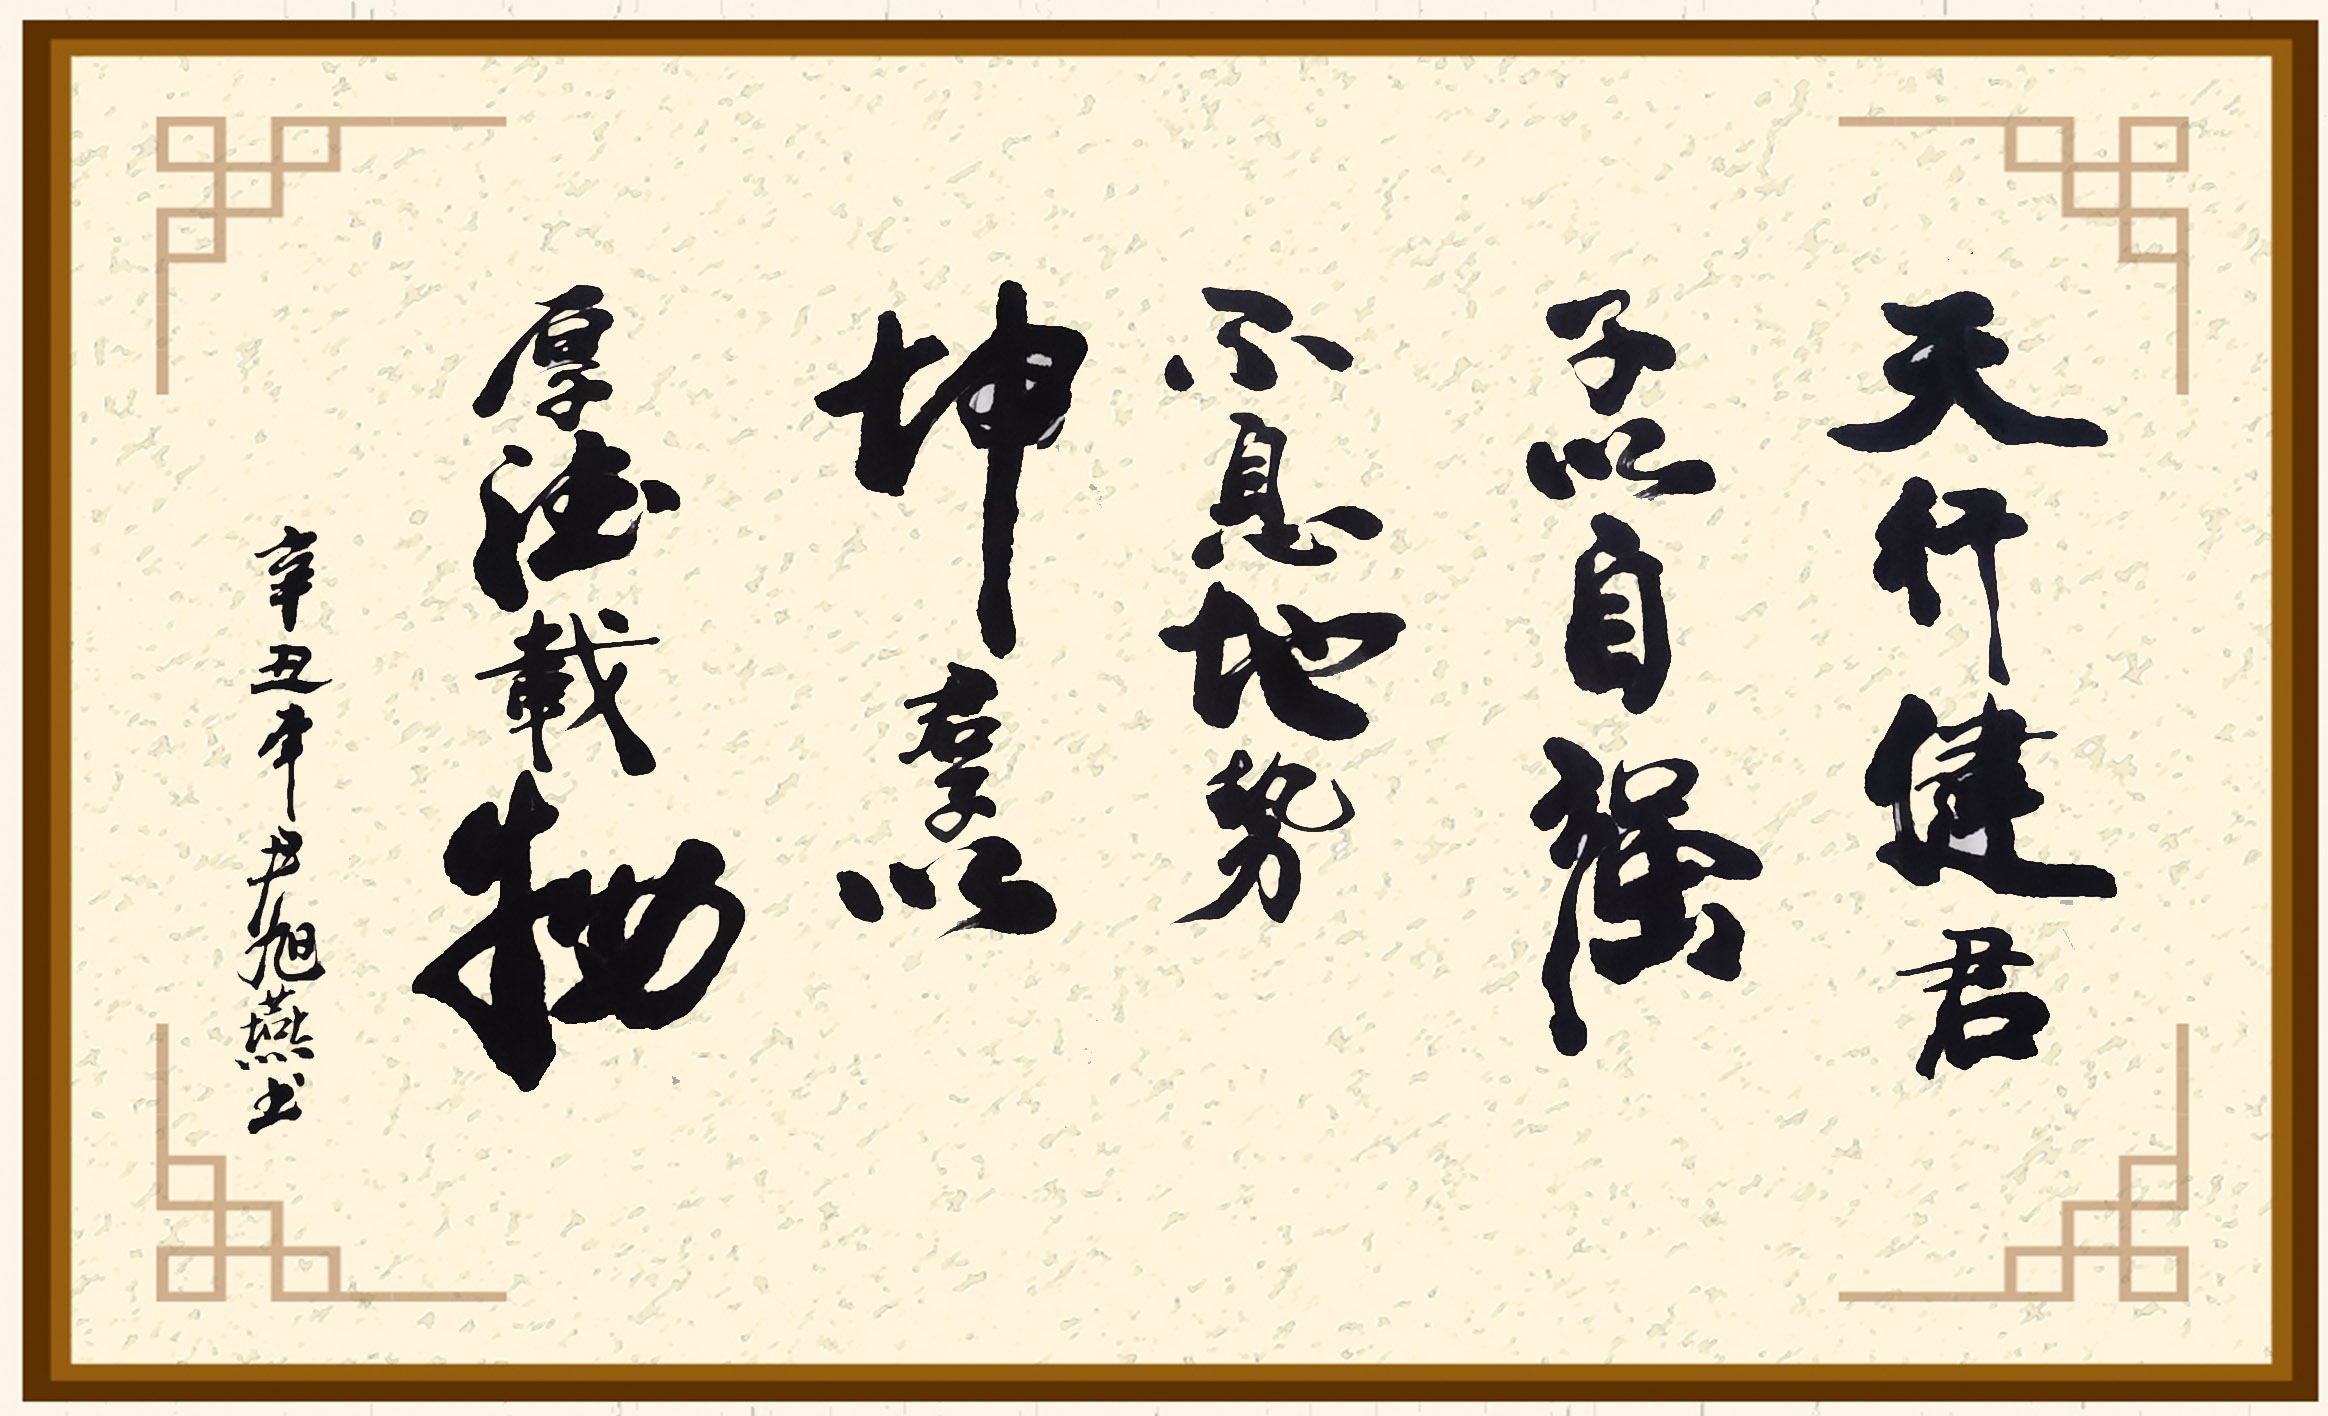 天行健君
子以自强
不息地势
坤君子以
厚德載物
辛丑年尹旭燕书